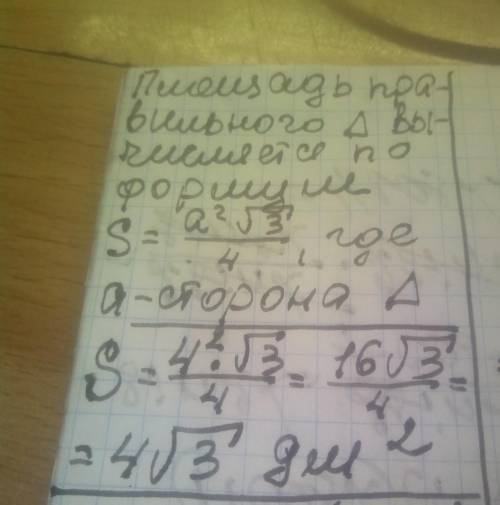 Площадь пра-
вильного Δ вы-
числяется по
формуле
S = a²√3/4, где
a - сторона Δ
S = 4²·√3/4 = 16√3/4 =
= 4√3 дм²